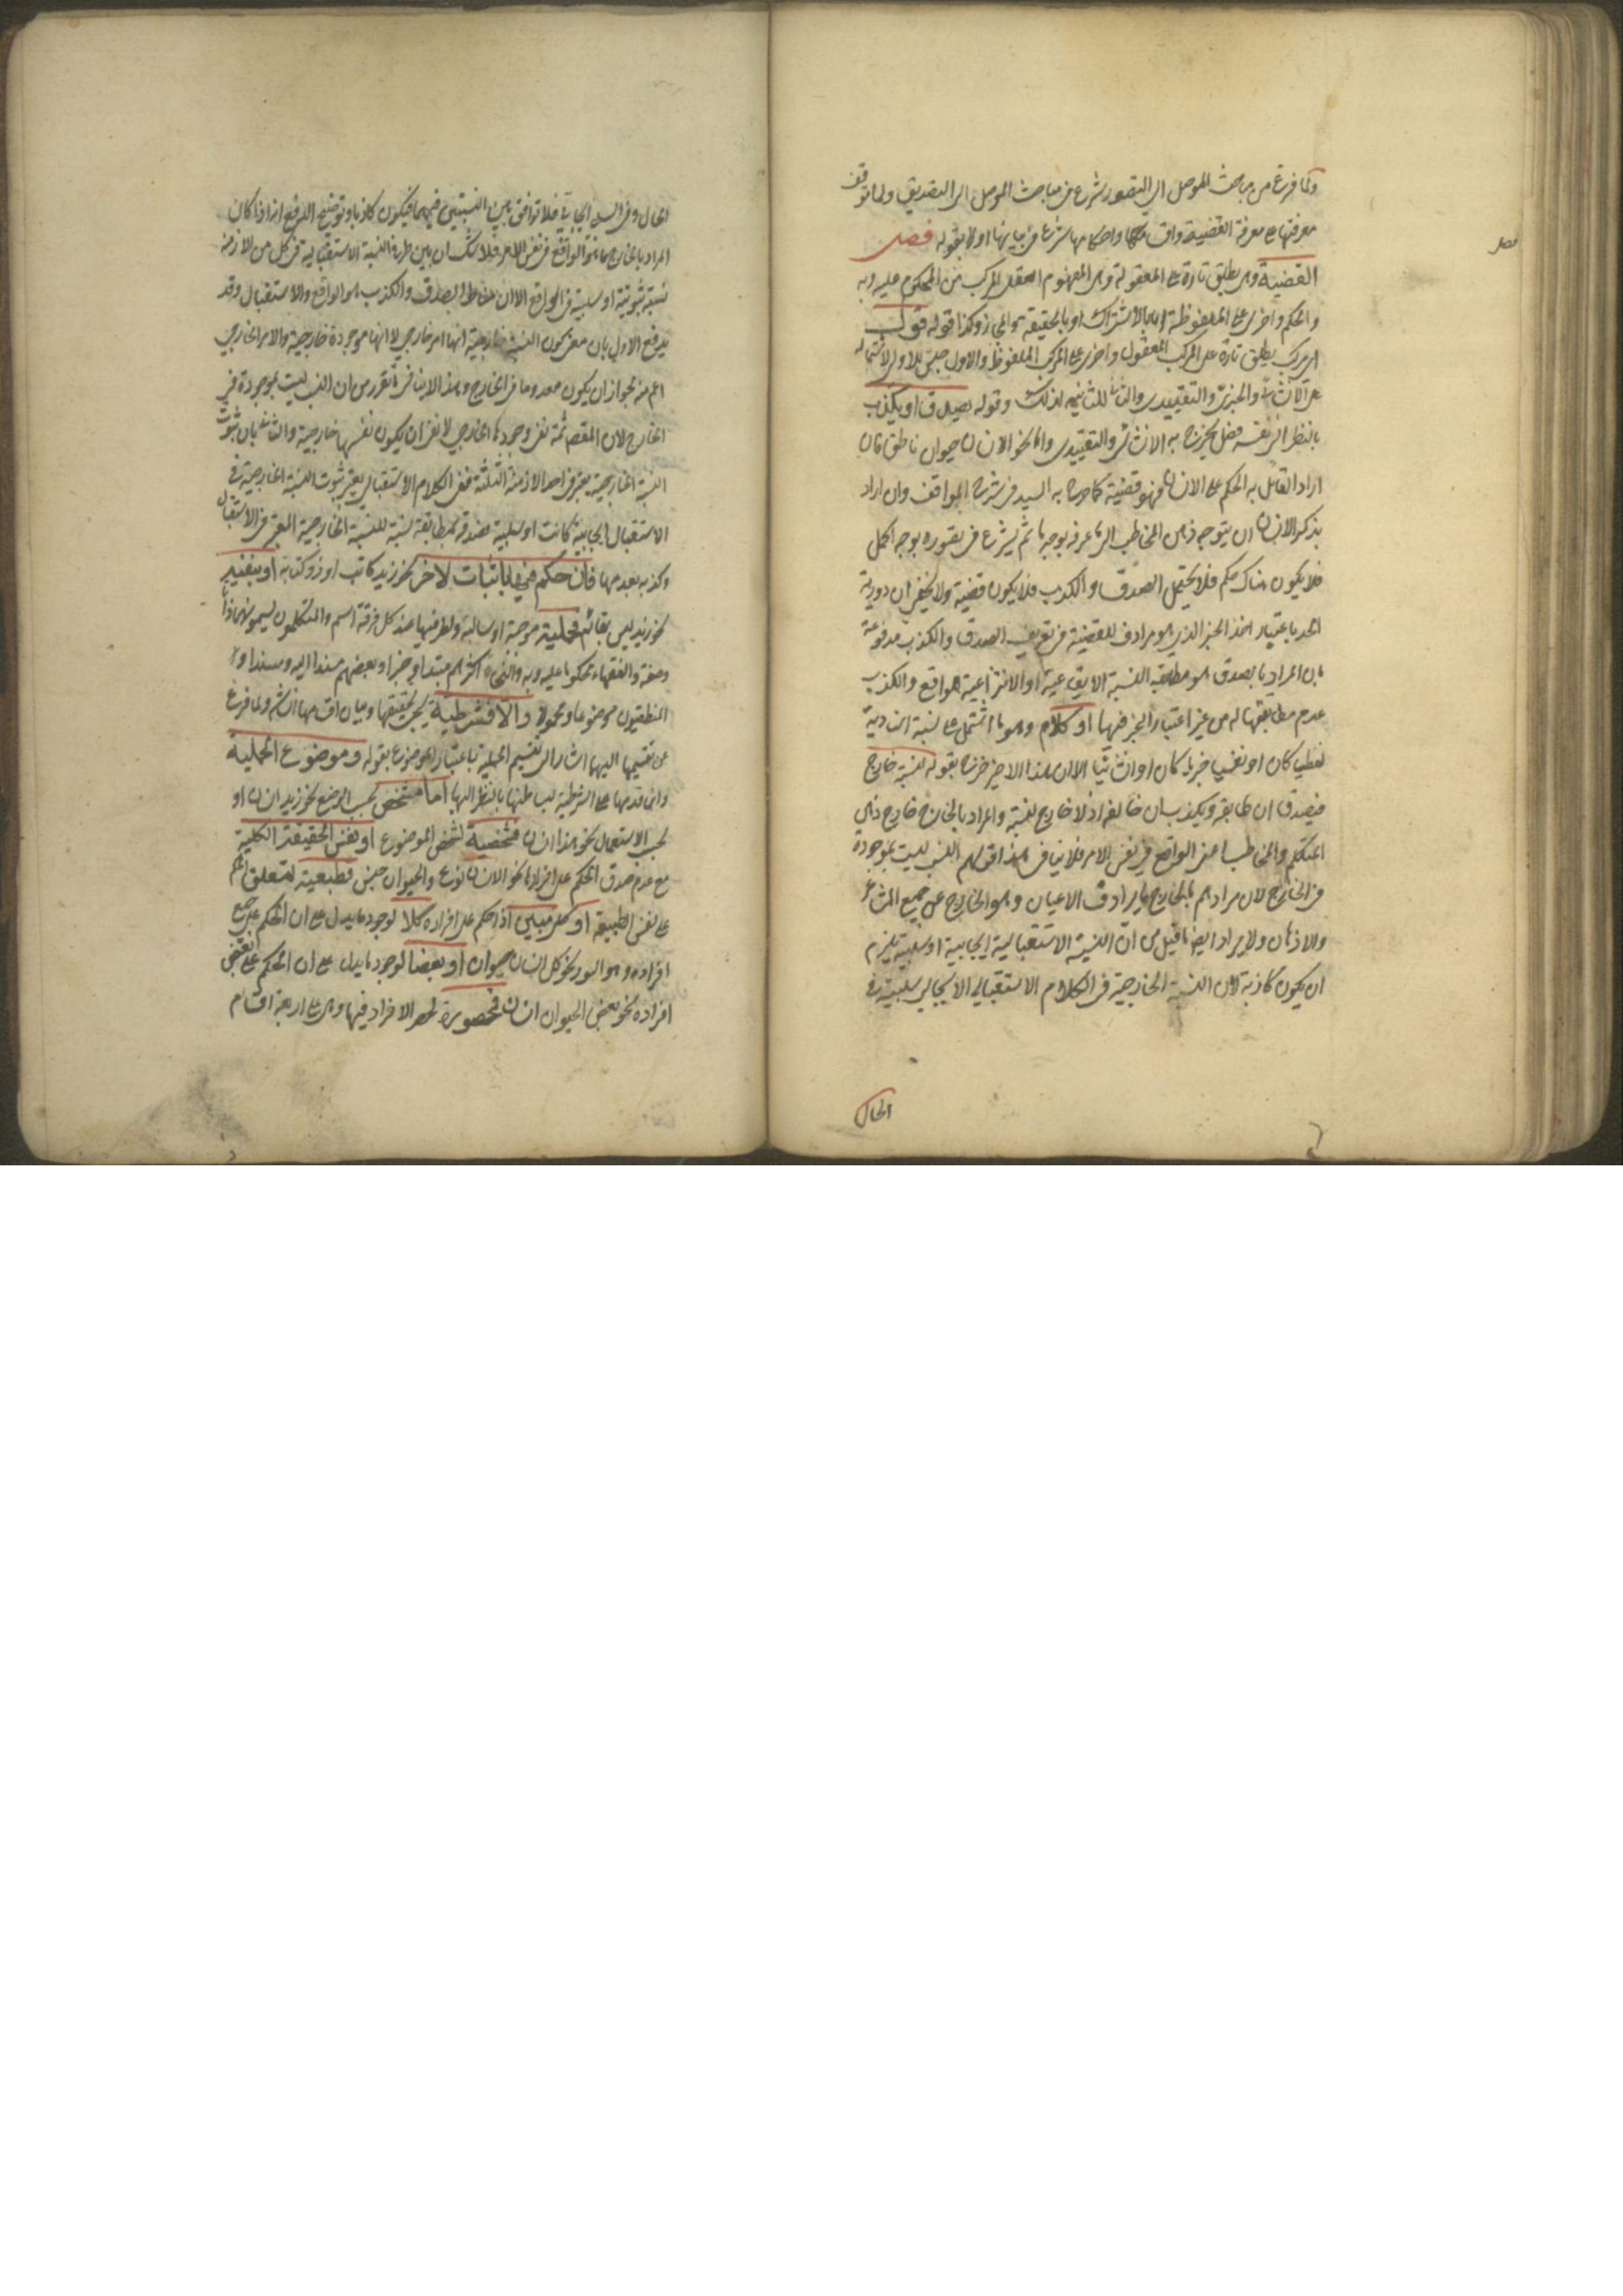 ولما فرغ من مباحث الموصل الى التصور شرع فى مباحث الموصل الى التصديق ولما توقف
معرفتها على معرفة القضية واقسامها واحكامها شرع فى بيانها اولا بقوله فصل
فصل
القضية وهى يطلق تارة على المعقولة وهى المفهوم العقلى المركب من المحكوم عليه وبه
والحكم واخرى على الملفوظة اما بالاشتراك او بالحقيقة والمجاز وكذا قوله قول
اى مركب يطلق تارة على المركب المعقول واخرى على المركب الملفوظ والاول جنس للاولى لاشتماله
على الانشائى والخبرى والتقييدى والثانى للثانية لذلك وقوله يصدق او يكذب
بالنظر الى نفسه فصل يخرج به الانشائى والتقييدى واما نحو الانسان حيوان ناطق فان
اراد القائل به الحكم على الانسان فهو قضية كما صرح به السيد فى شرح المواقف وان اراد
بذكر الانسان ان يتوجه ذهن المخاطب الى ما عرفه بوجه ما ثم يشرع فى تصوره بوجه اكمل
فلا يكون هناك حكم فلا يحتمل الصدق والكذب فلا يكون قضية ولا يخفى ان دورية
الحد باعتبار اخذ الخبر الذى هو مرادف للقضية فى تعريف الصدق والكذب مدفوعة
بان المراد بالصدق هو مطابقة النسبة الايقاعية او الانتزاعية للواقع والكذب
عدم مطابقتها له من غير اعتبار الخبر فيها او كلام وهو ما اشتمل على نسبة اسنادية
لفظيا كان او نفسيا خبريا كان او انشائيا الا ان هذا الاخير خرج بقوله لنسبته خارج
فيصدق ان طابقه ويكذب ان خالفه اذ لا خارج لنسبته والمراد بالخارج خارج ذهنى
المتكلم والمخاطب اعنى الواقع فى نفس الامر فلا ينافى هذا قولهم النسب ليست بموجودة
فى الخارج لان مرادهم بالخارج ما يرادف الاعيان وهو الخارج عن جميع المشاعر
والاذهان ولا يرد ايضا ما قيل من ان النسبة الاستقبالية ايجابية او سلبية يلزم
ان يكون كاذبة لان النسبة الخارجية فى الكلام الاستقبالى الايجابى سلبية فى
الحال
الحال وفى السلبى ايجابية فلا توافق بين النسبتين فيهما فيكون كاذبا وتوضيح الدفع انه اذا كان
المراد بالخارج هنا هو الواقع فى نفس الامر فلا شك ان بين طرفى النسبة الاستقبالية فى كل من الازمنة
نسبة ثبوتية او سلبية فى الواقع الا ان مناط الصدق والكذب هو الواقع والاستقبال وقد
يدفع الاول بان معنى كون النسبة خارجية انها امر خارجى لا انها موجودة خارجية والامر الخارجى
اعم منه لجواز ان يكون معدوما فى الخارج وهذا لا ينافى ما تقرر من ان النسب ليست بموجودة فى
الخارج لان المقصود ثمة نفى وجودها الخارجى لا نفى ان يكون نفسها خارجية والثانى بان ثبوت
النسبة الخارجية يعتبر فى احد الازمنة الثلثة ففى الكلام الاستقبالى يعتبر ثبوت النسبة الخارجية فى
الاستقبال ايجابية كانت او سلبية فصدقه بمطابقة نسبته للنسبة الخارجية المعتبرة فى الاستقبال
وكذبه بعدمها فان حكم فيها باثبات لاخر نحو زيد كاتب او ذو كتابة او بنفيه
نحو زيد ليس بقائم فحملية موجبة او سالبة ولطرفيها عند كل فرقة اسم والمتكلمون يسمونهما ذاتا
وصفة والفقهاء محكوما عليه وبه والنحاة اكثرهم مبتدا وخبرا وبعضهم مسندا اليه ومسندا و
المنطقيون موضوعا ومحمولا والا فشرطية يجئ تحقيقها وبيان اقسامها ان شاء ولما فرغ
عن تقسيمها اليها اشار الى تقسيم الحملية باعتبار الموضوع بقوله وموضوع الحملية
وانما قدمها على الشرطية لبساطتها بالنظر اليها اما مشخص بحسب الوضع نحو زيد انسان او
بحسب الاستعمال نحو هذا انسان فشخصية لتشخص الموضوع او نفس الحقيقة الكلية
مع عدم صدق الحكم على افرادها نحو الانسان نوع والحيوان جنس فطبعية لتعلق الحكم
على نفس الطبيعة او كلى مبين اذا حكم على افراده كلا لوجود ما يدل على ان الحكم على جميع
افراده وهو السور نحو كل انسان حيوان او بعضا لوجود ما يدل على ان الحكم على بعض
افراده نحو بعض الحيوان انسان فمحصورة لحصر الافراد فيها وهى على اربعة اقسام